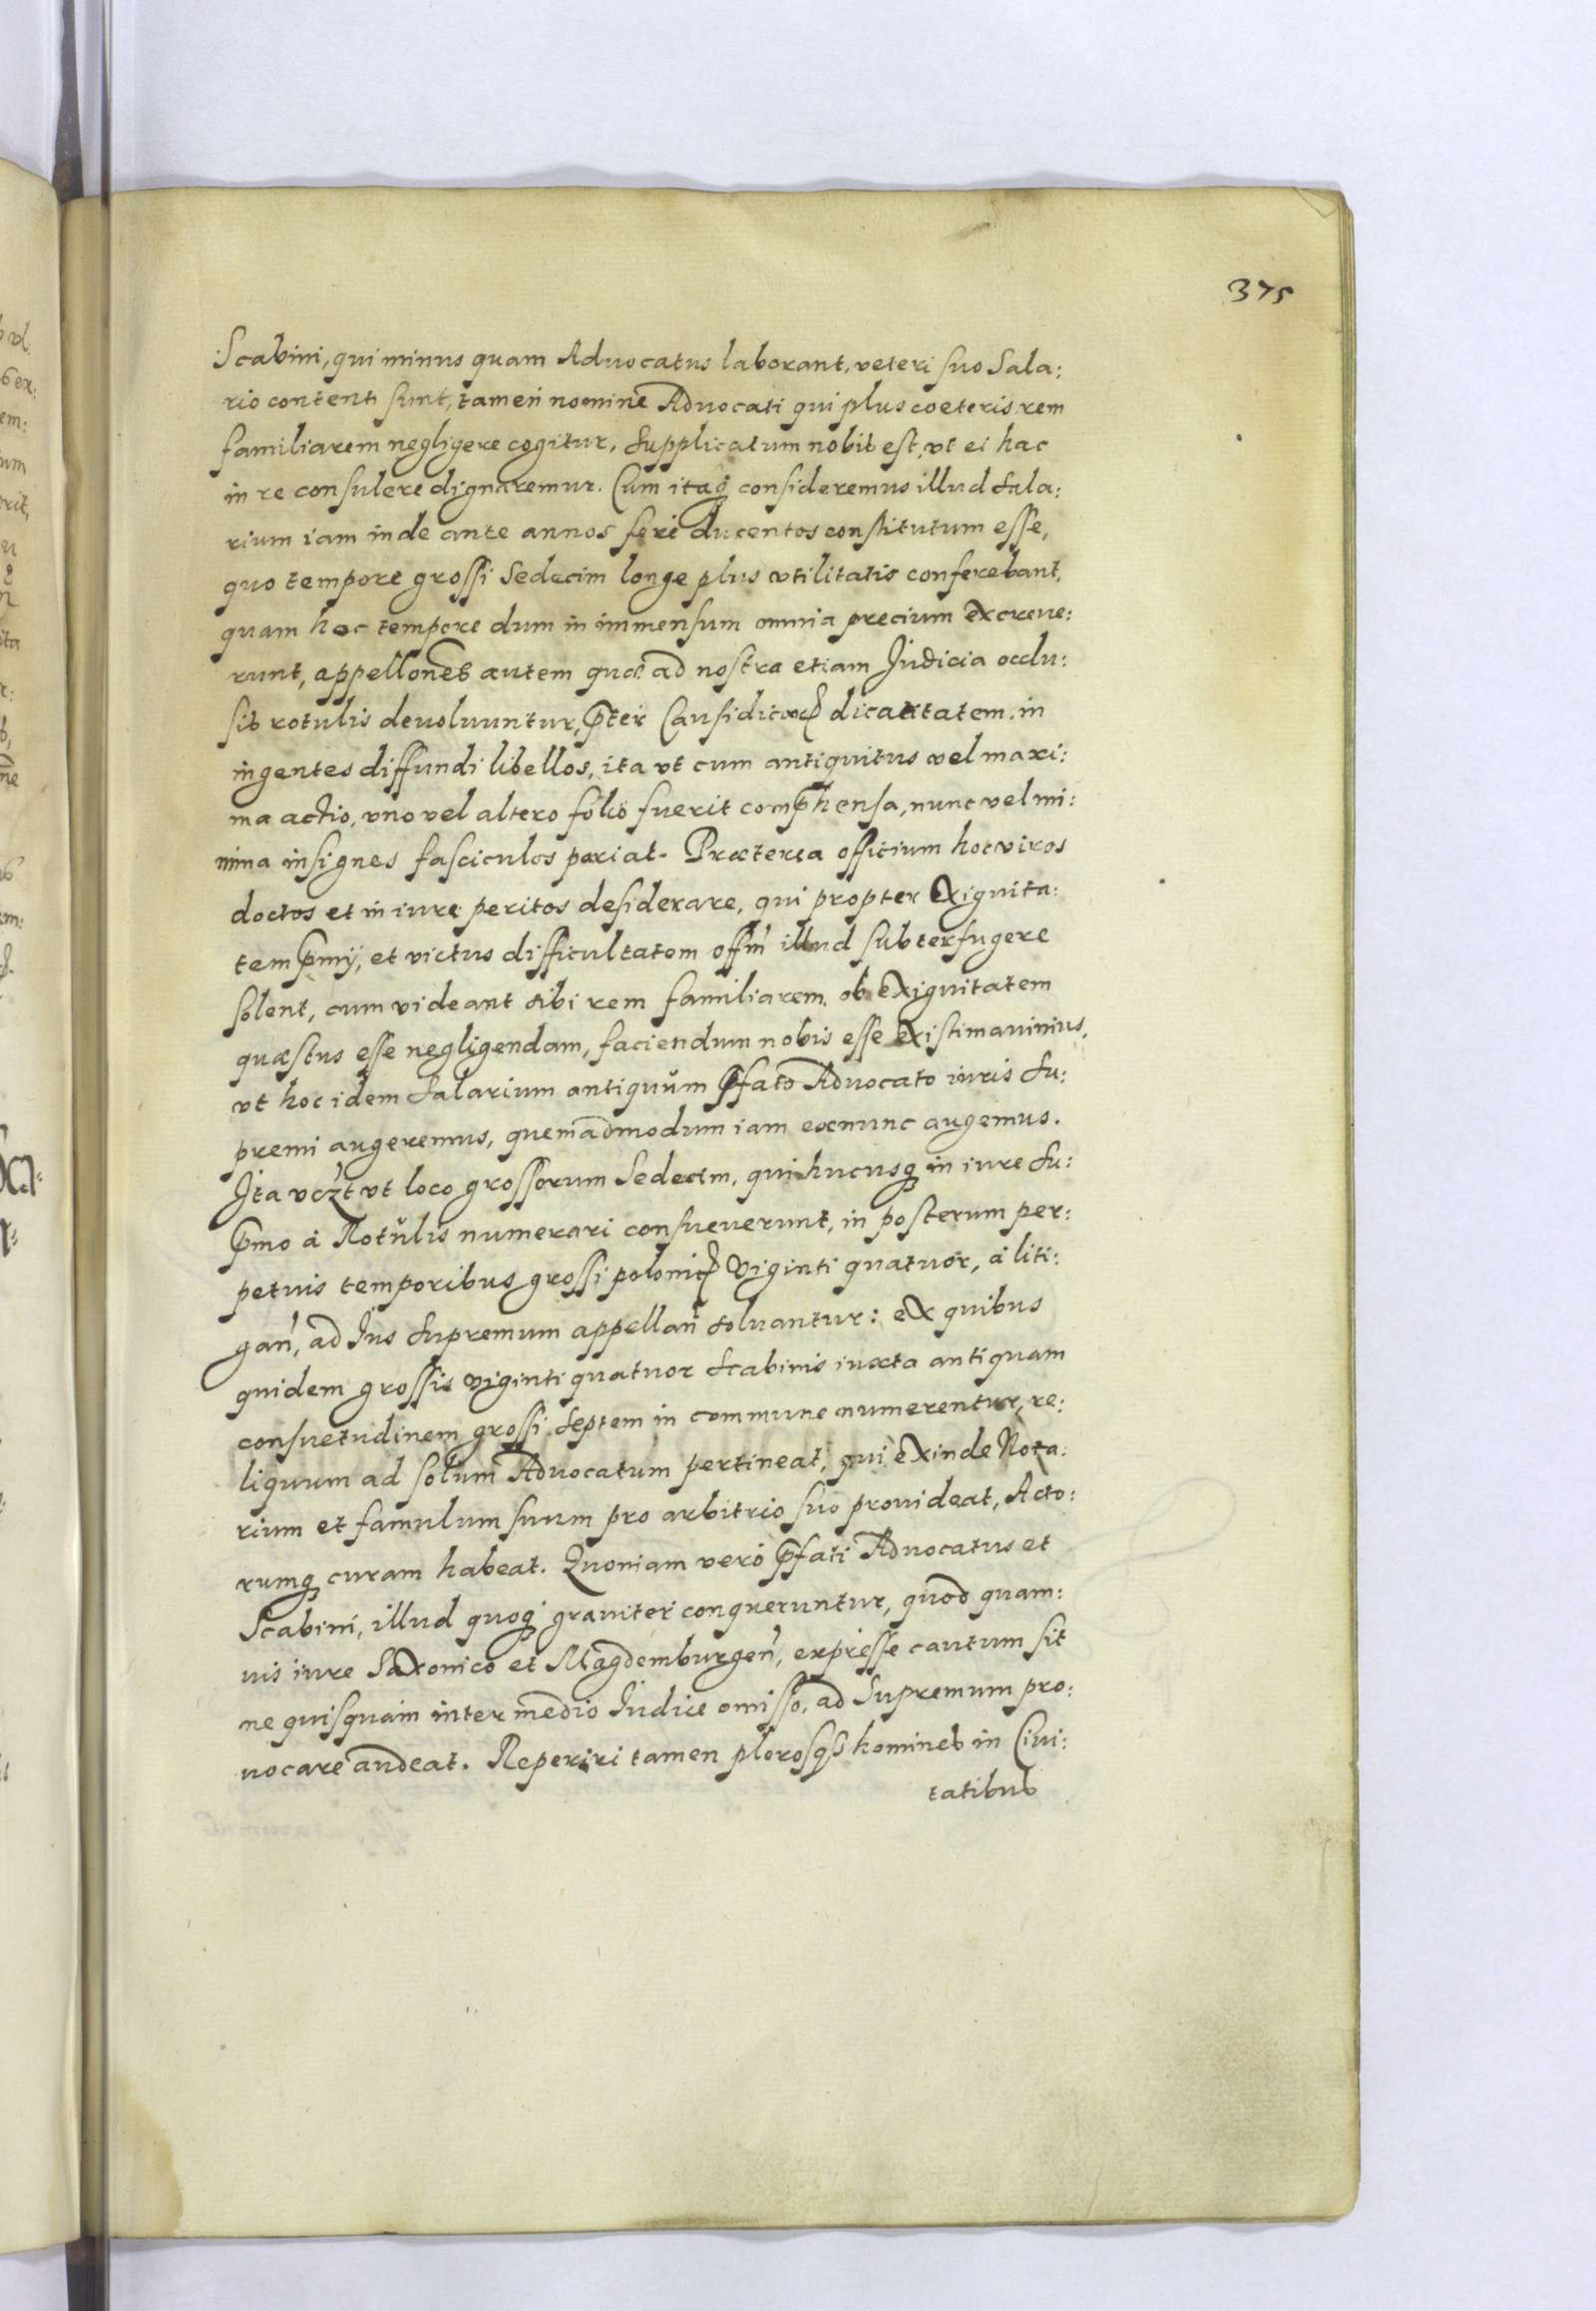 375
Scabini, qui minus quam Aduocatus laborant, veteri suo Sala:
rio contenti sunt, tamen nomine Aduocati qui plus coeteris rem
familiarem negligere cogitur, supplicatum nobis est, vt ei hac
in re consulere dignaremur. Cum itaq consideremus illud sala:
rium iam inde ante annos feré ducentos constitutum esse,
quo tempore grossi Sedecim longe plus vtilitatis conferebant,
quam hoc tempore dum in immensum omnia precium excreue:
runt, appellones autem quae ad nostra etiam Judicia occlu:
sis rotulis deuoluuntur, pter Causidicoꝝ dicacitatem, in
ingentes diffundi libellos, ita vt cum antiquitus vel maxi:
ma actio, vno vel altero folio fuerit comphensa, nunc vel mi:
nima insignes fasciculos pariat. Praeterea officium hoc viros
doctos et in iure peritos desiderare, qui propter exiguita:
tem pmij, et victus difficultatem offm illud subterfugere
solent, cum videant sibi rem familiarem, ob exiguitatem
quaestus esse negligendam, faciendum nobis esse existimauimus,
vt hoc idem salarium antiquum pfato Aduocato iuris su:
premi augeremus, quemadmodum iam exnunc augemus.
Ita vczt vt loco grossorum Sedecim, qui hucusq in iure su:
pmo á Rotulis numerari consueuerunt, in posterum per:
petuis temporibus grossi polonicꝝ viginti quatuor, á liti:
gan, ad Jus supremum appellan soluantur: ex quibus
quidem grossis viginti quatuor scabinis iuxta antiquam
consuetudinem grossi septem in commune numerentur, re:
liquum ad solum Aduocatum pertineat, qui exinde Nota:
rium et famulum suum pro arbitrio suo prouideat, Acto:
rumq curam habeat. Quoniam veró pfati Aduocatus et
Scabini, illud quoq grauiter conqueruntur, quod quam:
uis iure Saxonico et Magdemburgen, expresse cautum sit
ne quisquam intermedio Judice omisso, ad Supremum pro:
uocare audeat. Reperiri tamen plerosqs homines in Ciui:
tatibus